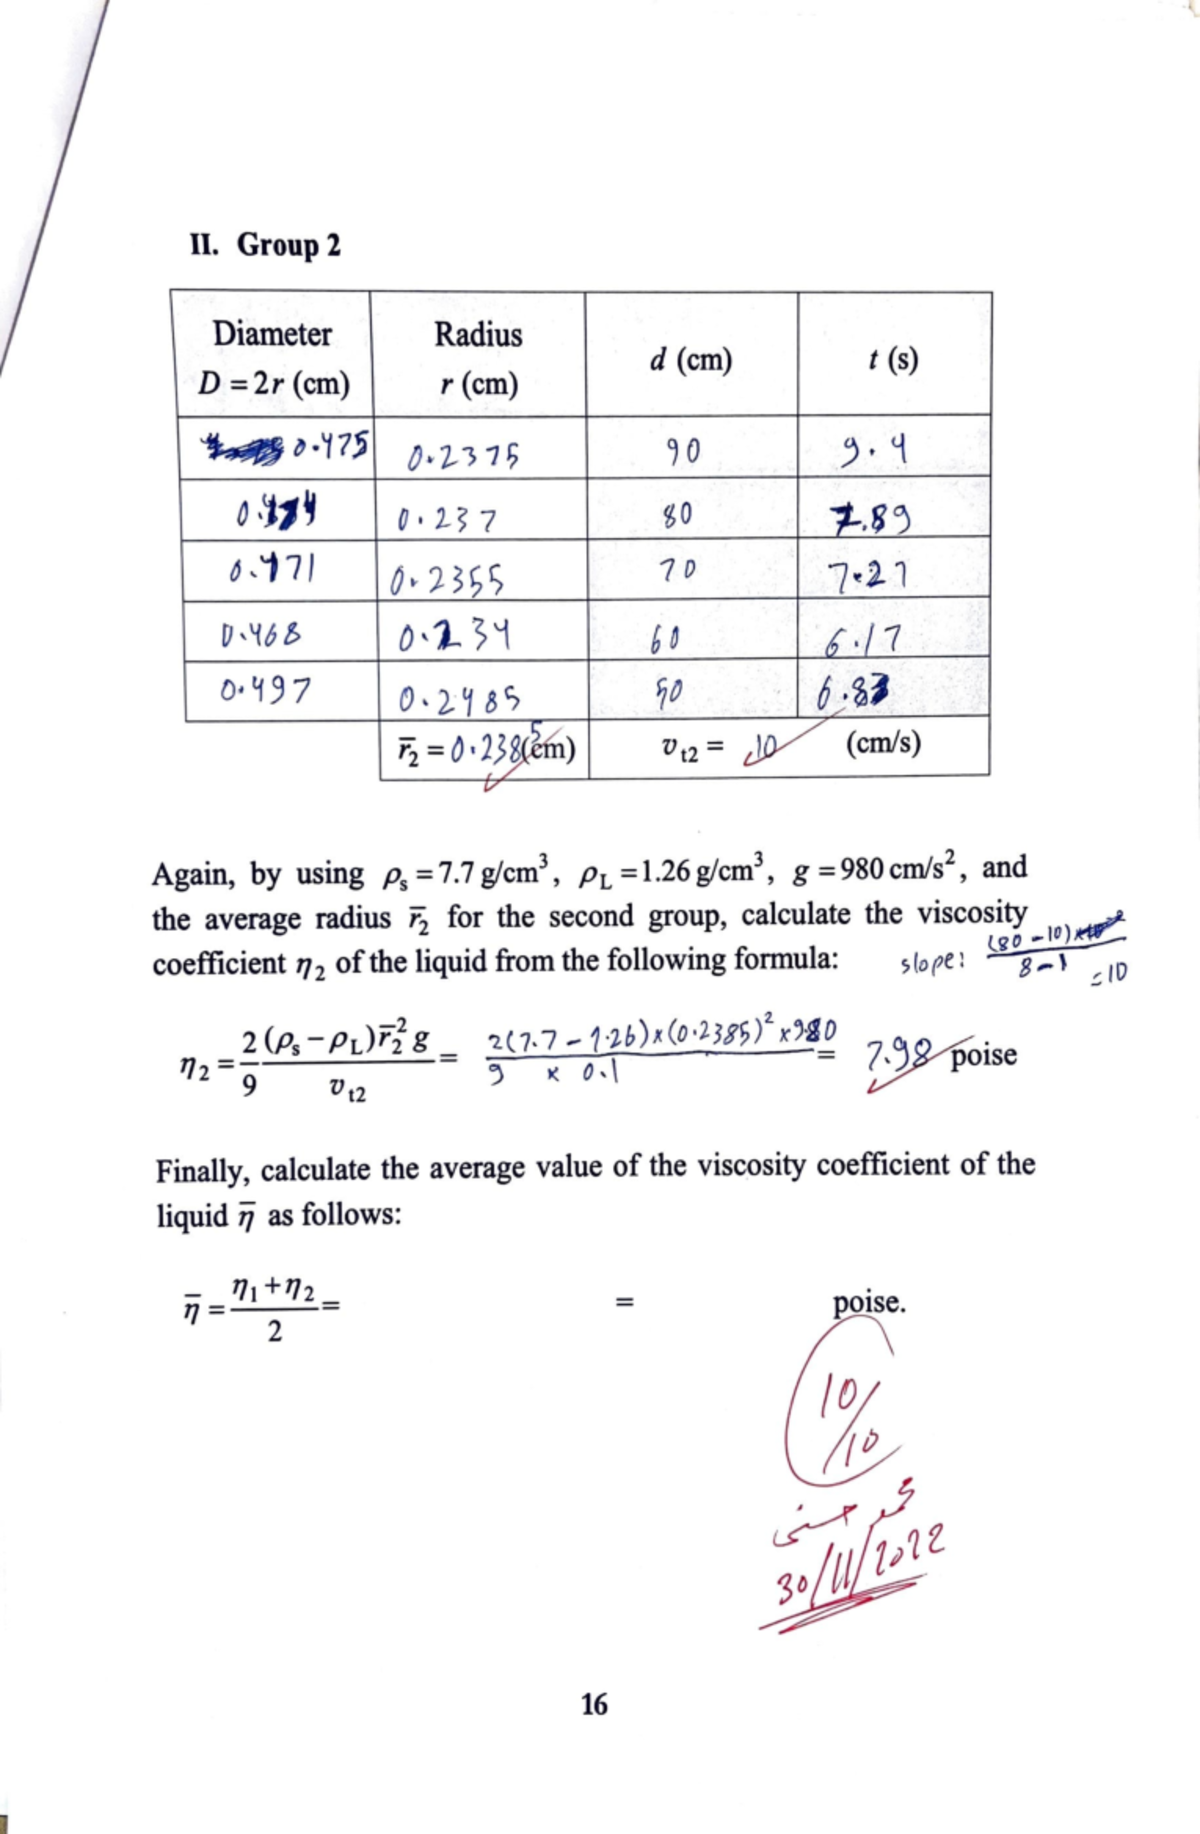 II. Group 2
Diameter D = 2r (cm) Radius r (cm) d (cm) t (s)
0.475 0.2375 90 9.4
0.474 0.237 80 7.89
0.471 0.2355 70 7.27
0.468 0.234 60 6.17
0.497 0.2485 50 6.83
r̄₂ = 0.2385 (cm) υt2 = 10 (cm/s)
Again, by using ρs = 7.7 g/cm³, ρL = 1.26 g/cm³, g = 980 cm/s², and
the average radius r̄₂ for the second group, calculate the viscosity
coefficient η₂ of the liquid from the following formula:
slope: (80-10) / 8-1 = 10
η₂ = 2/9 (ρs − ρL) r̄₂² g / υt2 = 2(7.7 - 1.26) × (0.2385)² × 980 / 9 × 0.1 = 7.98 poise
Finally, calculate the average value of the viscosity coefficient of the
liquid η̄ as follows:
η̄ = η₁ + η₂ / 2 = = poise.
10/10
30/11/2022
16